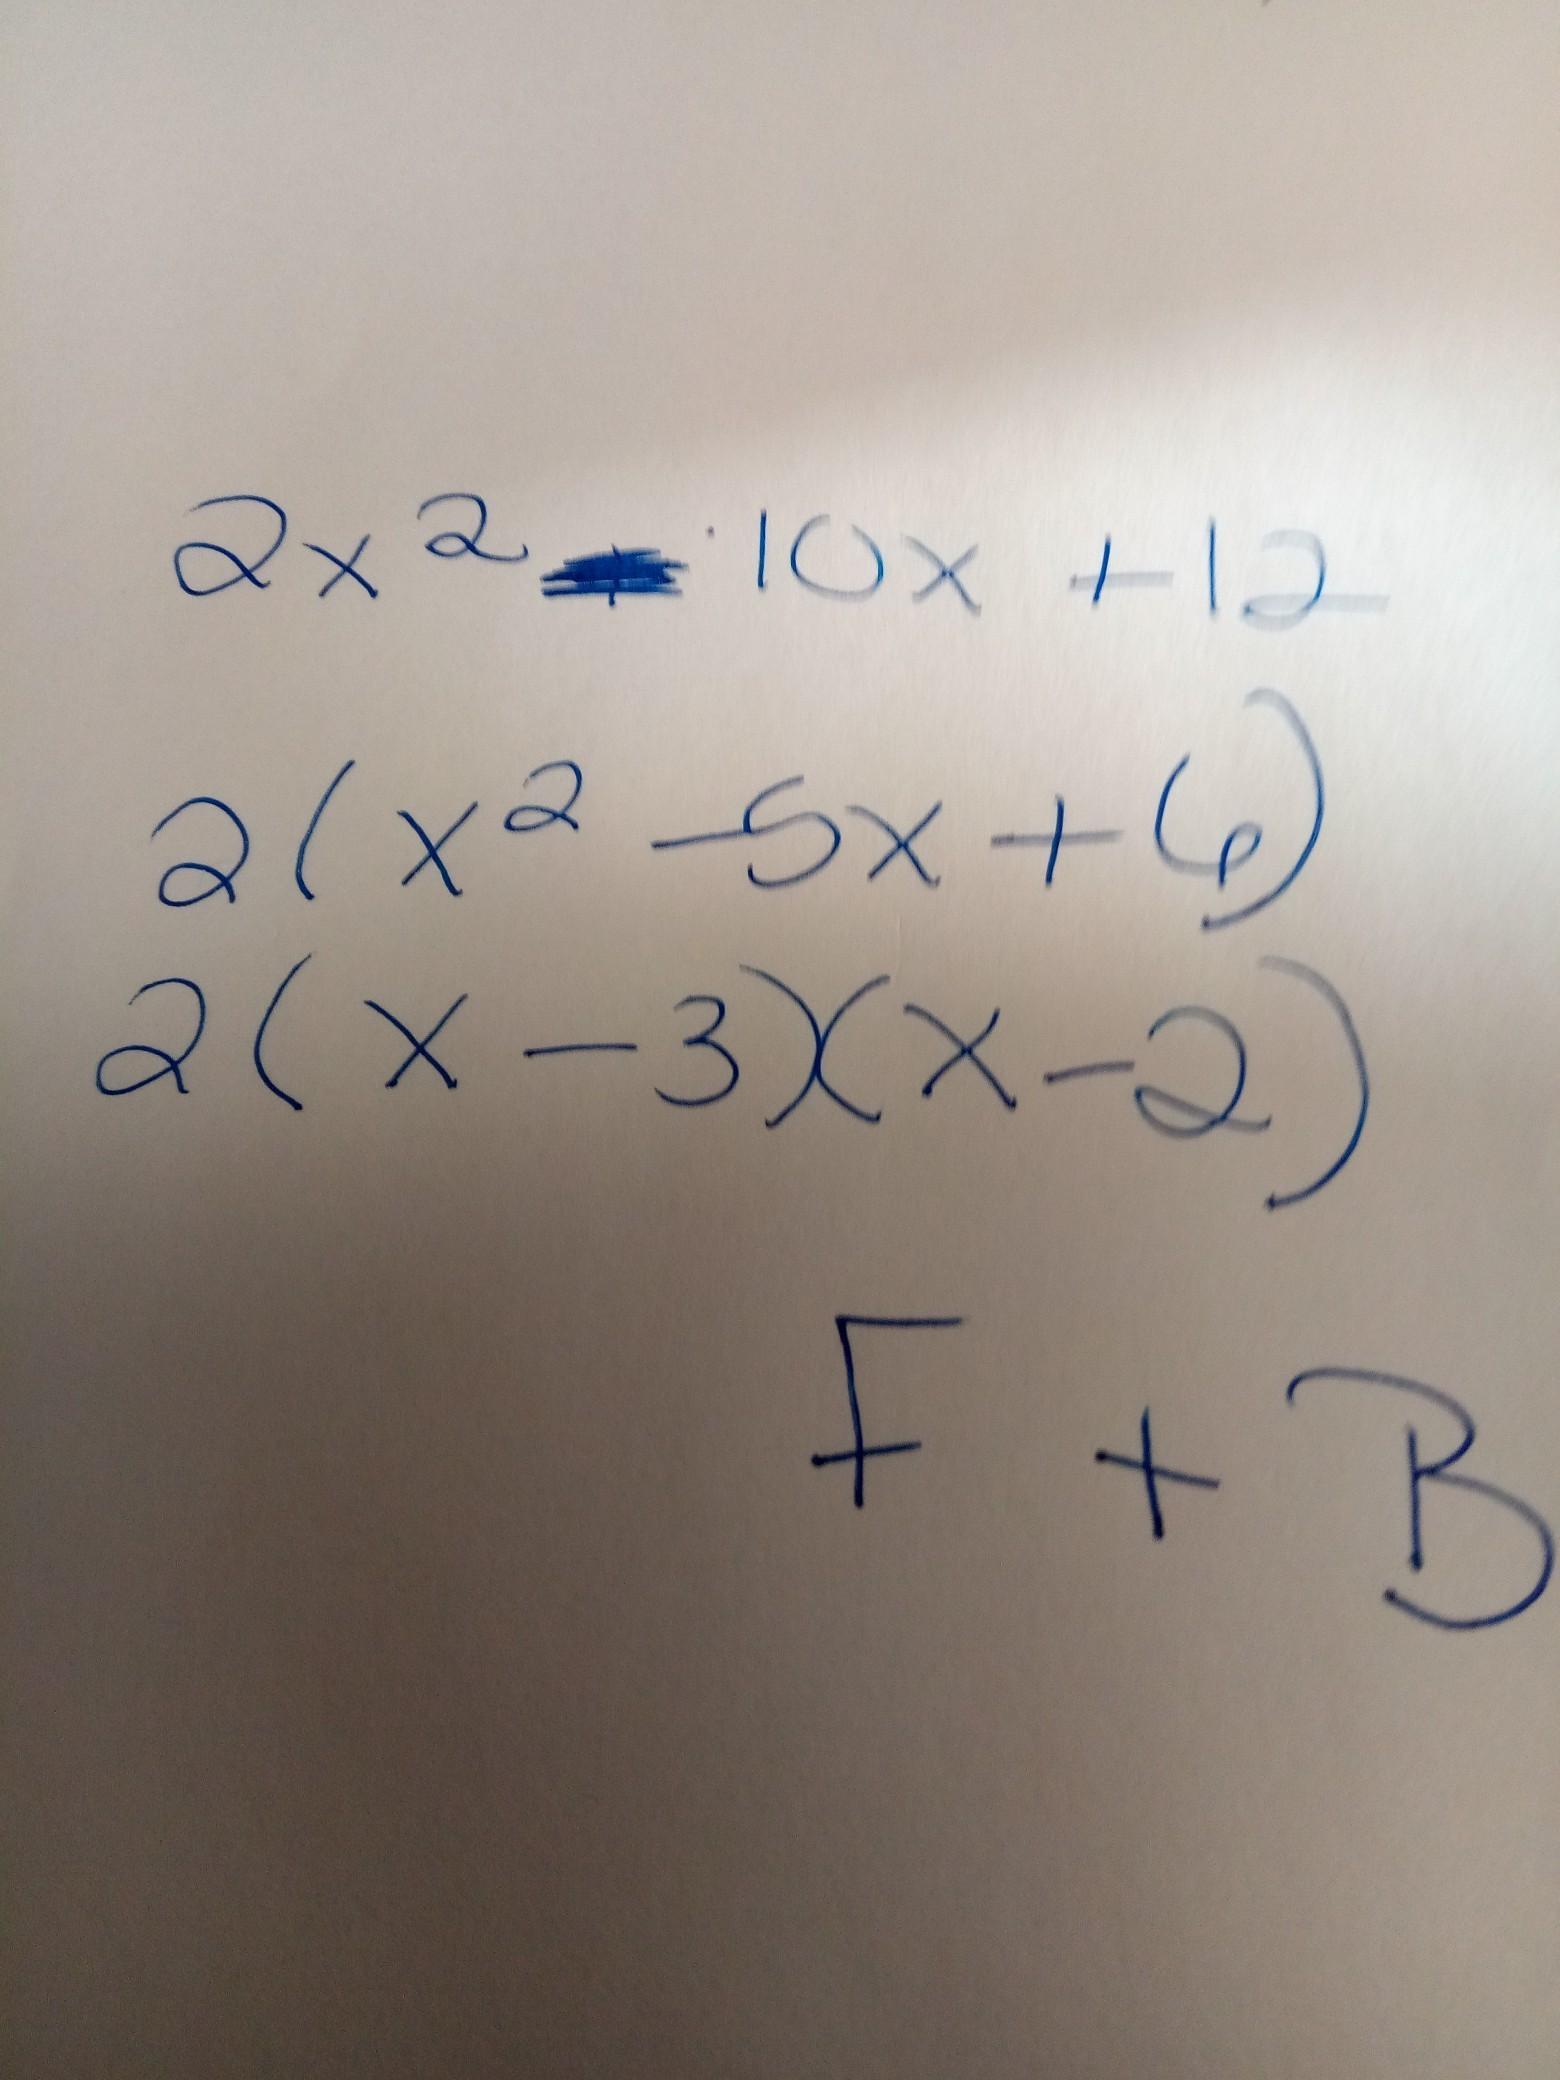 2x² - 10x + 12
2(x² - 5x + 6)
2(x - 3)(x - 2)
F + B